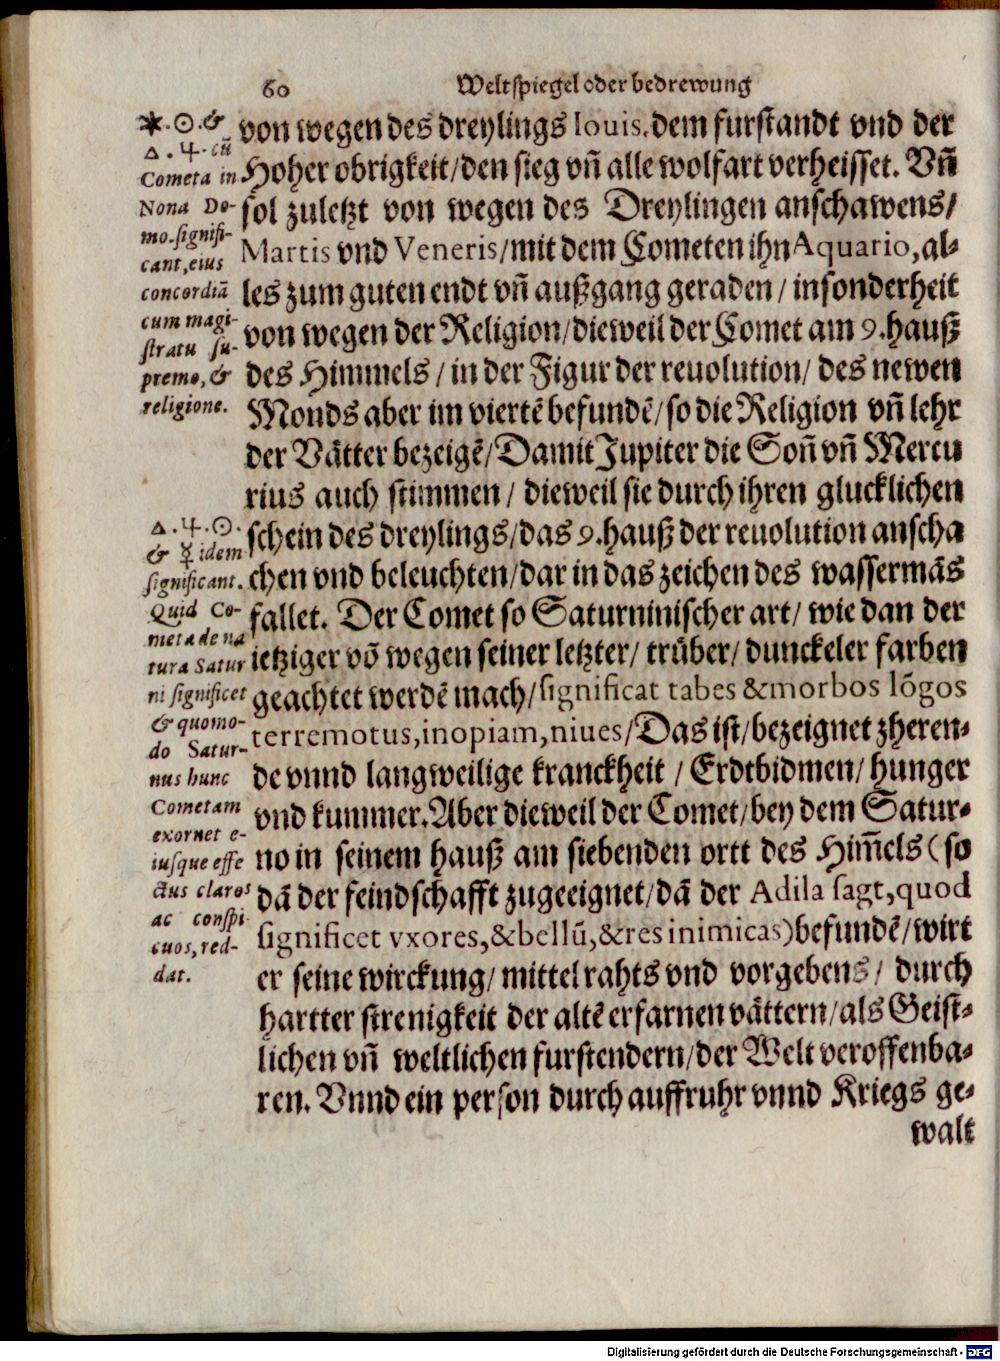 60 Weltspiegel oder bedrewung
von wegen des dreylings Iouis. dem furstandt vnd der
Hoher obrigkeit/den sieg vñ alle wolfart verheisset. Vñ
sol zuletzt von wegen des Dreylingen anschawens/
Martis vnd Veneris/mit dem Cometen ihn Aquario, al-
les zum guten endt vñ außgang geraden/ insonderheit
von wegen der Religion/dieweil der Comet am 9.hauß
des Himmels/ in der Figur der reuolution/ des newen
Monds aber im viertẽ befundẽ/so die Religion vñ lehr
der Vätter bezeigẽ/Damit Jupiter die Soñ vñ Mercu
rius auch stimmen/ dieweil sie durch ihren glucklichen
schein des dreylings/das 9.hauß der reuolution anscha
chen vnd beleuchten/dar in das zeichen des wassermãs
fallet. Der Comet so Saturninischer art/ wie dan der
ietziger võ wegen seiner letzter/ trüber/ dunckeler farben
geachtet werdẽ mach/significat tabes & morbos lõgos
terremotus, inopiam, niues/Das ist/bezeignet zheren-
de vnnd langweilige kranckheit/ Erdtbidmen/ hunger
vnd kummer. Aber dieweil der Comet/bey dem Satur-
no in seinem hauß am siebenden ortt des Him̃els (so
dã der feindschafft zugeeignet/dã der Adila sagt, quod
significet vxores, & bellũ, & res inimicas) befundẽ/wirt
er seine wirckung/ mittel rahts vnd vorgebens/ durch
hartter strenigkeit der altẽ erfarnen vättern/als Geist-
lichen vñ weltlichen furstendern/der Welt veroffenba-
ren. Vnnd ein person durch auffruhr vnnd Kriegs ge-
walt
✶.☉.&
△.♃.cũ
Cometa in
Nona Do-
mo.signifi-
cant,eius
concordiã
cum magi-
stratu su-
premo, &
religione.
△.♃.☉.
& ☿ idem
significant.
Quid Co-
meta de na
tura Satur
ni significet
& quomo-
do Satur-
nus hunc
Cometam
exornet e-
iusque effe
ctus claros
ac conspi
cuos, red-
dat.
Digitalisierung gefördert durch die Deutsche Forschungsgemeinschaft - DFG